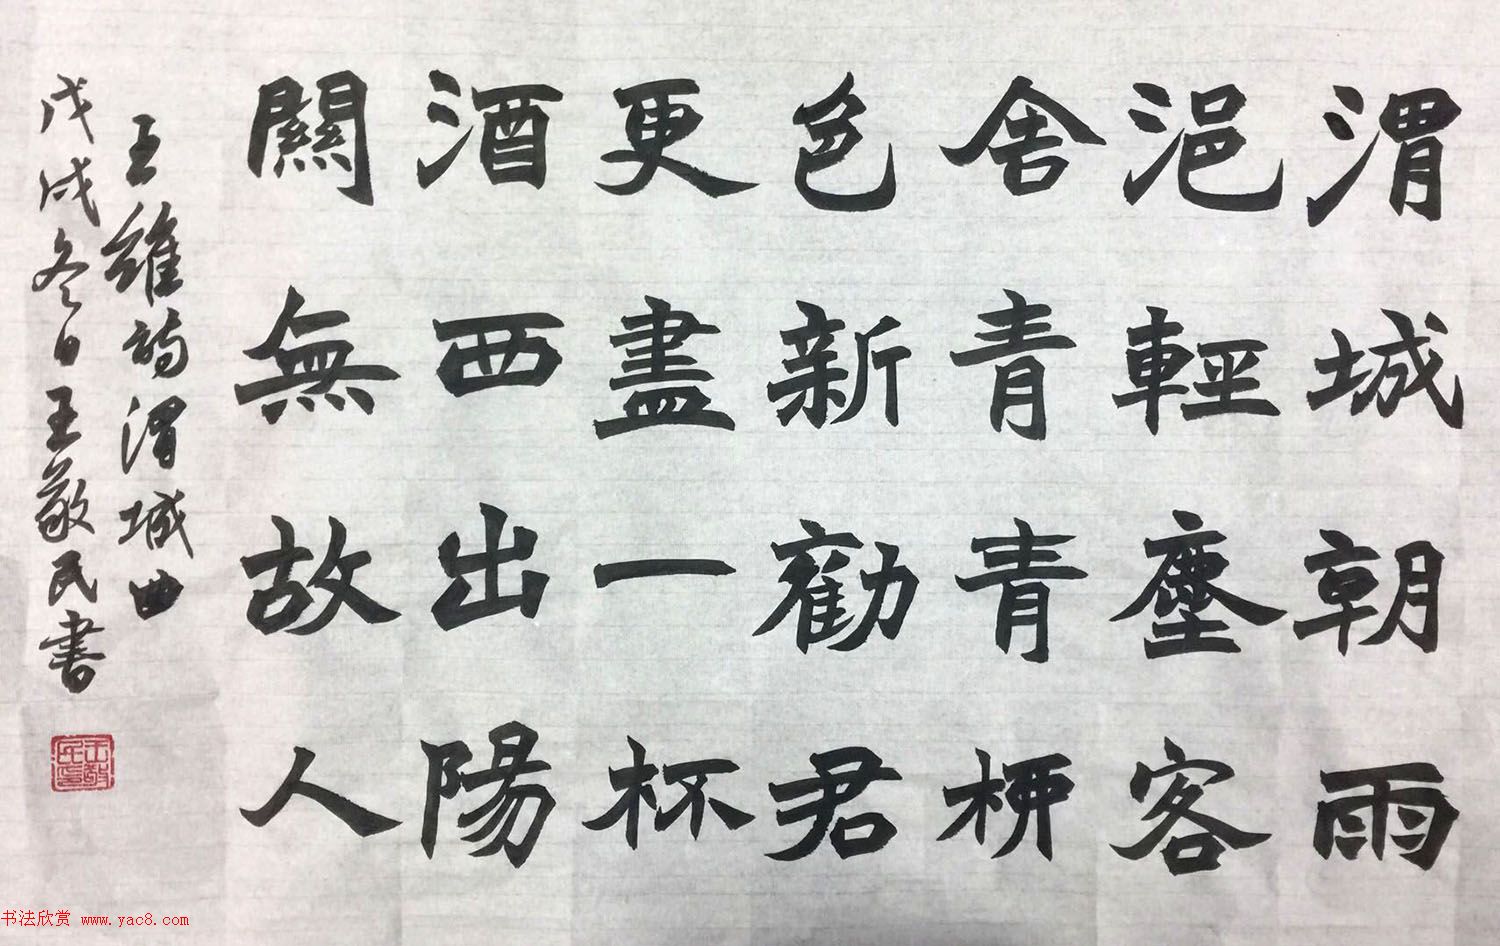 渭城朝雨
浥輕塵客
舍青青柳
色新勸君
更盡一杯
酒西出陽
關無故人
王維詩渭城曲
戊戌冬日王敬民書
王敬民印
书法欣赏 www.yac8.com